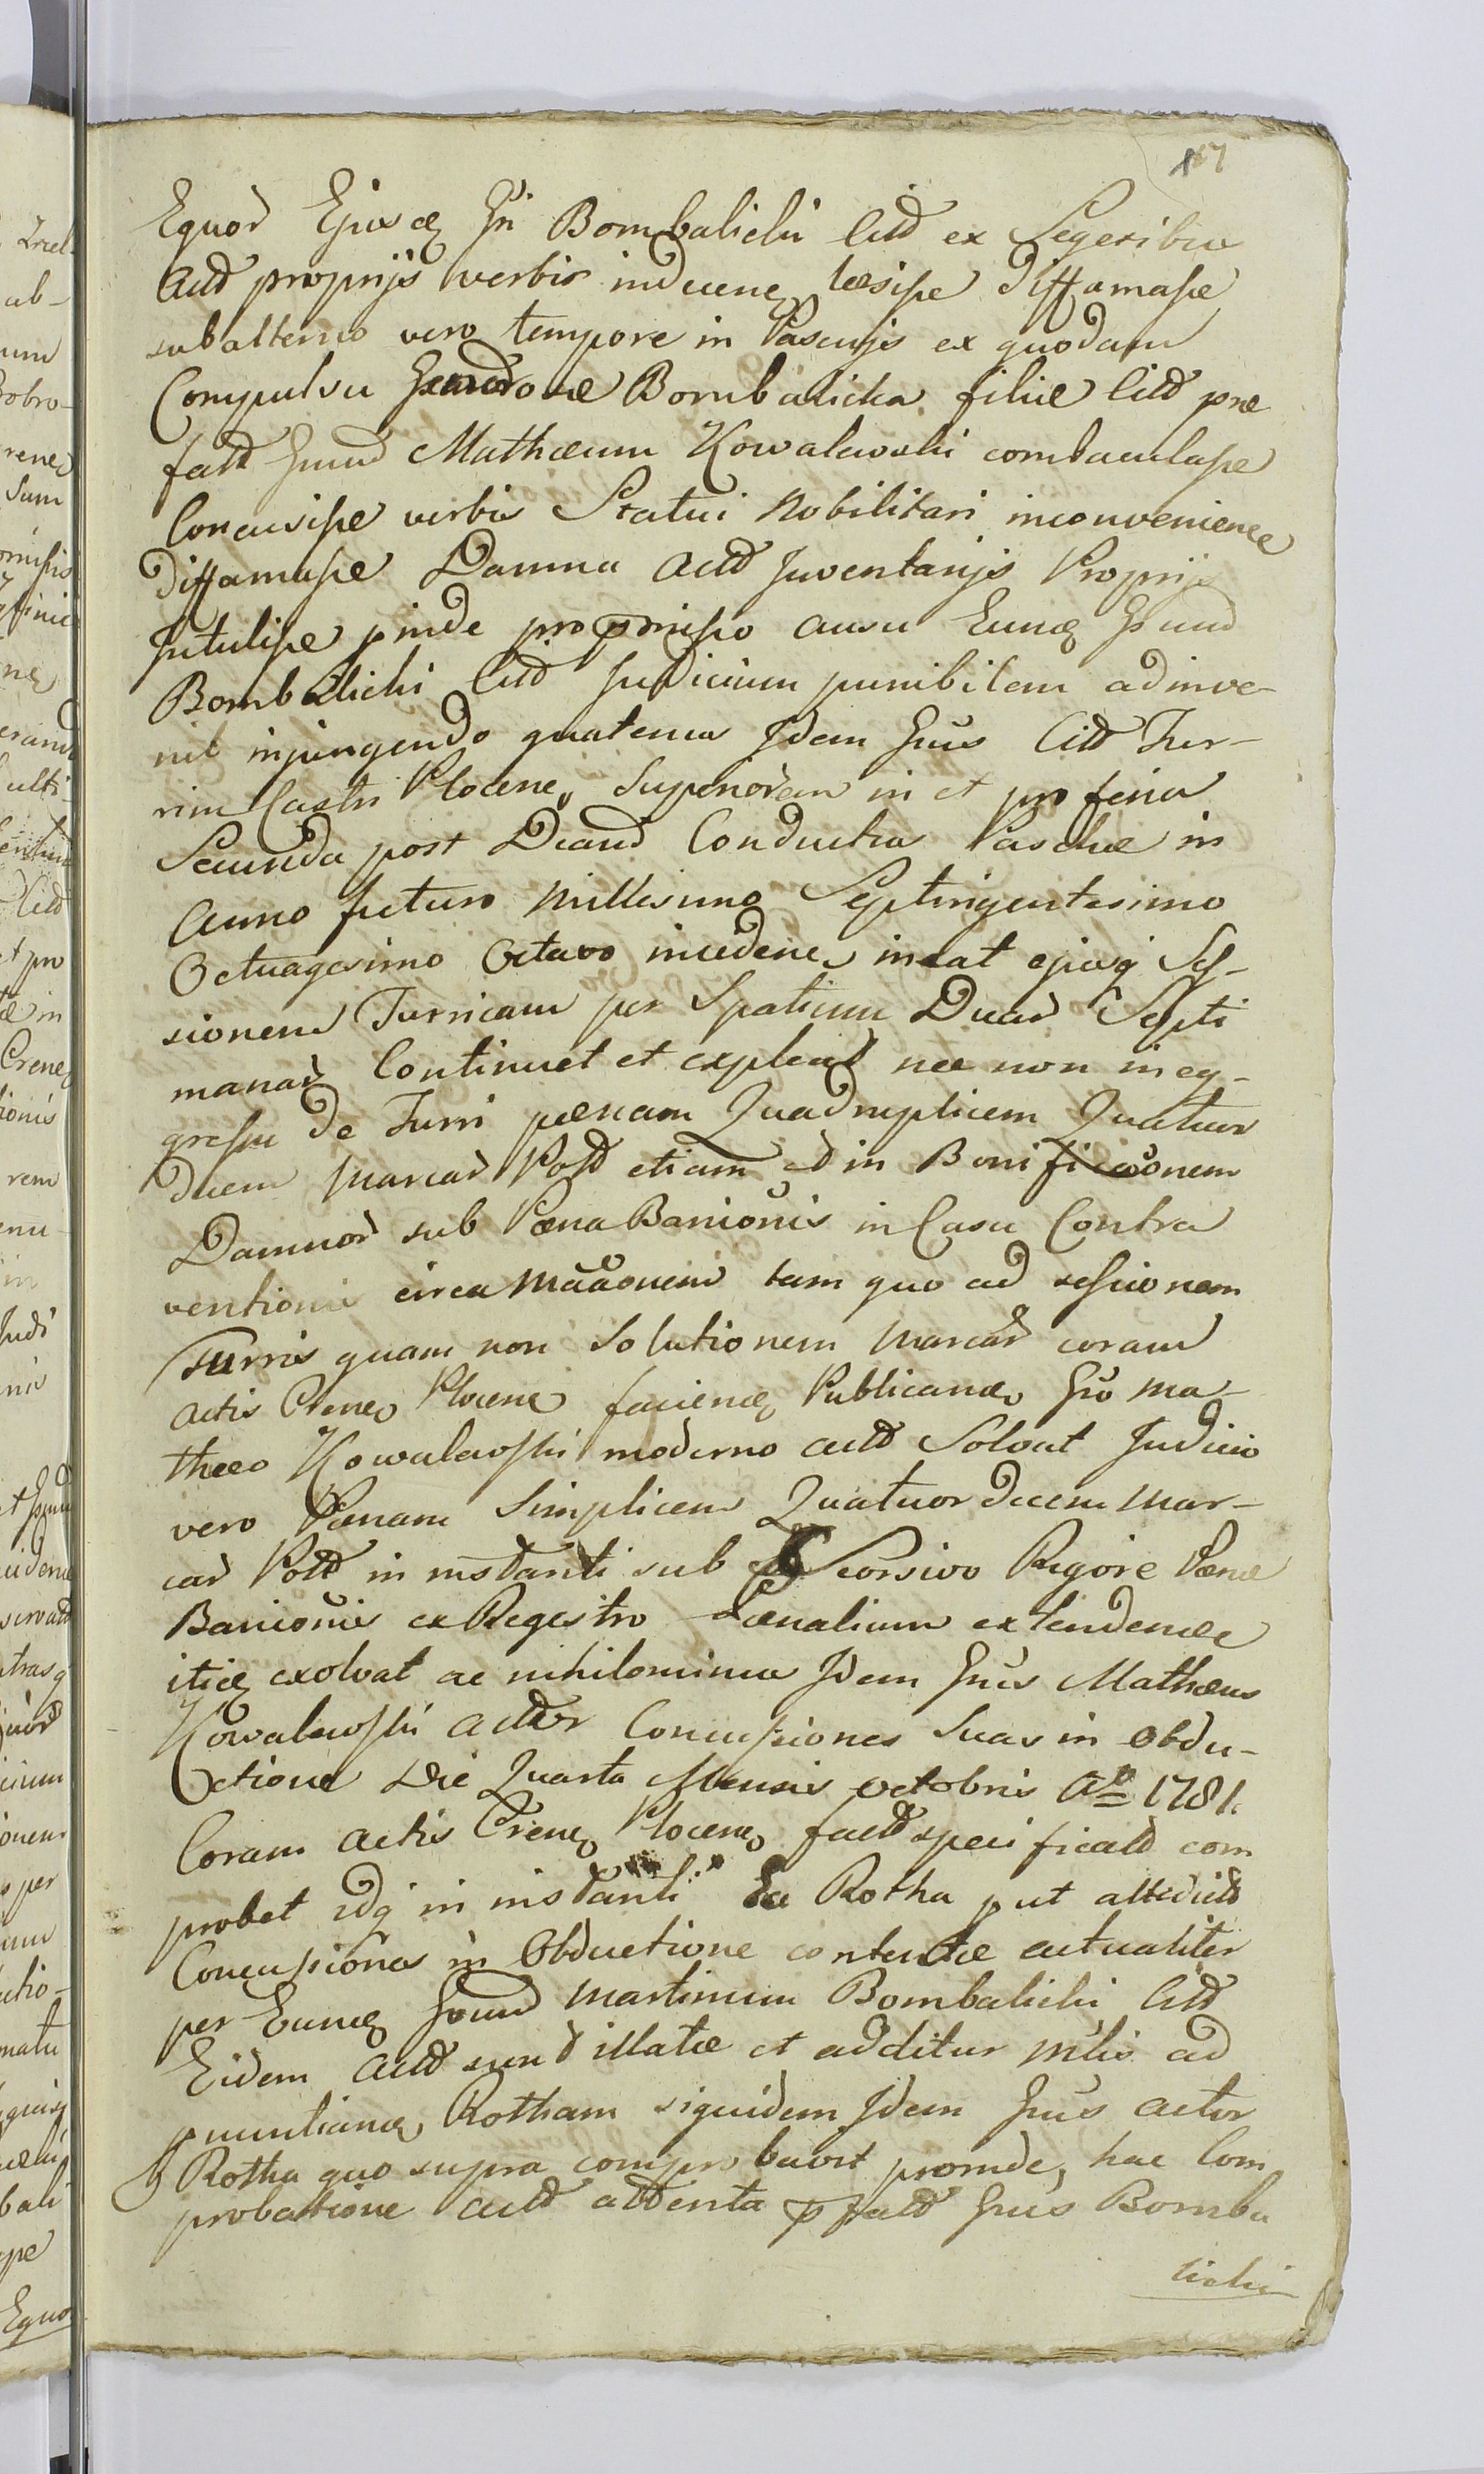 187
Equor Ejusdę Gñi Bombalicki Citt ex Segetibus
Actt proprijs verbis indecenę læsisse diffamasse
subalterno vero tempore in Pascuijs ex quodam
Compulsu Bombalicka filiæ Citt præ
fatt Gnum Mathæum Kowalewski combaculasse
Concusisse verbis Statui Nobilitari inconvenience
Diffamasse Damna Actt Juventarijs Proprijs
Intulisse pinde pro pmisso ausu Eundę Gnum
Bombalicki Citt Judicium punibilem adinve-
nit injungendo quatenus Idem Gñus Citt Tur-
rim Castri Plocenę Superiorem in et pro feria
Secunda post Dcam Conductus Paschæ in
Anno futuro Millesimo Septingentesimo
Octuagesimo Octavo incedenę ineat ejusqȝ Ses-
sionem Turricam per Spatium Duar Septi
manar Continuet et expleat nec non in eg-
gressu de Turri pænam Quadruplicem Quatuor
decem Marcar Pold etiam et in Bonificãonem
Damnor sub Pæna Banionis in Casu Contra
ventionis circa Mãaonem tam quo ad sessionem
Turris quam non Solutionem Marcar coram
Actis Crenę Plocenę faciendę Publicandę Gño Ma-
thæo Kowalewski moderno actt Solvat Judicio
vero Pænam Simplicem Quatuordecem Mar-
car Pold in instanti sub Seorsivo Rigore Pænæ
Banionis ex Regestro Pænalium extendendæ
itidę exolvat ac nihilominus Idem Gñus Mathæus
Kowalewski Actor Concussiones Suas in Obdu-
ctione Die Quarta Mensis Octobris Aº 1781.
Coram Actis Crenę Plocenę factt specificatt com
probet idqȝ in instanti Ea Rotha put attedictt
Concussiones in Obductione contentæ actualiter
per Eundę Gnum Martinum Bombalicki Citt
Eidem Actt sunt illatæ et additur Mtris ad
pnuntiandę Rotham siquidem Idem Gñus Actor
Rotha quo supra comprobavit proinde, hac Com
probattione Actt attenta pfatt Gñus Bomba
licki